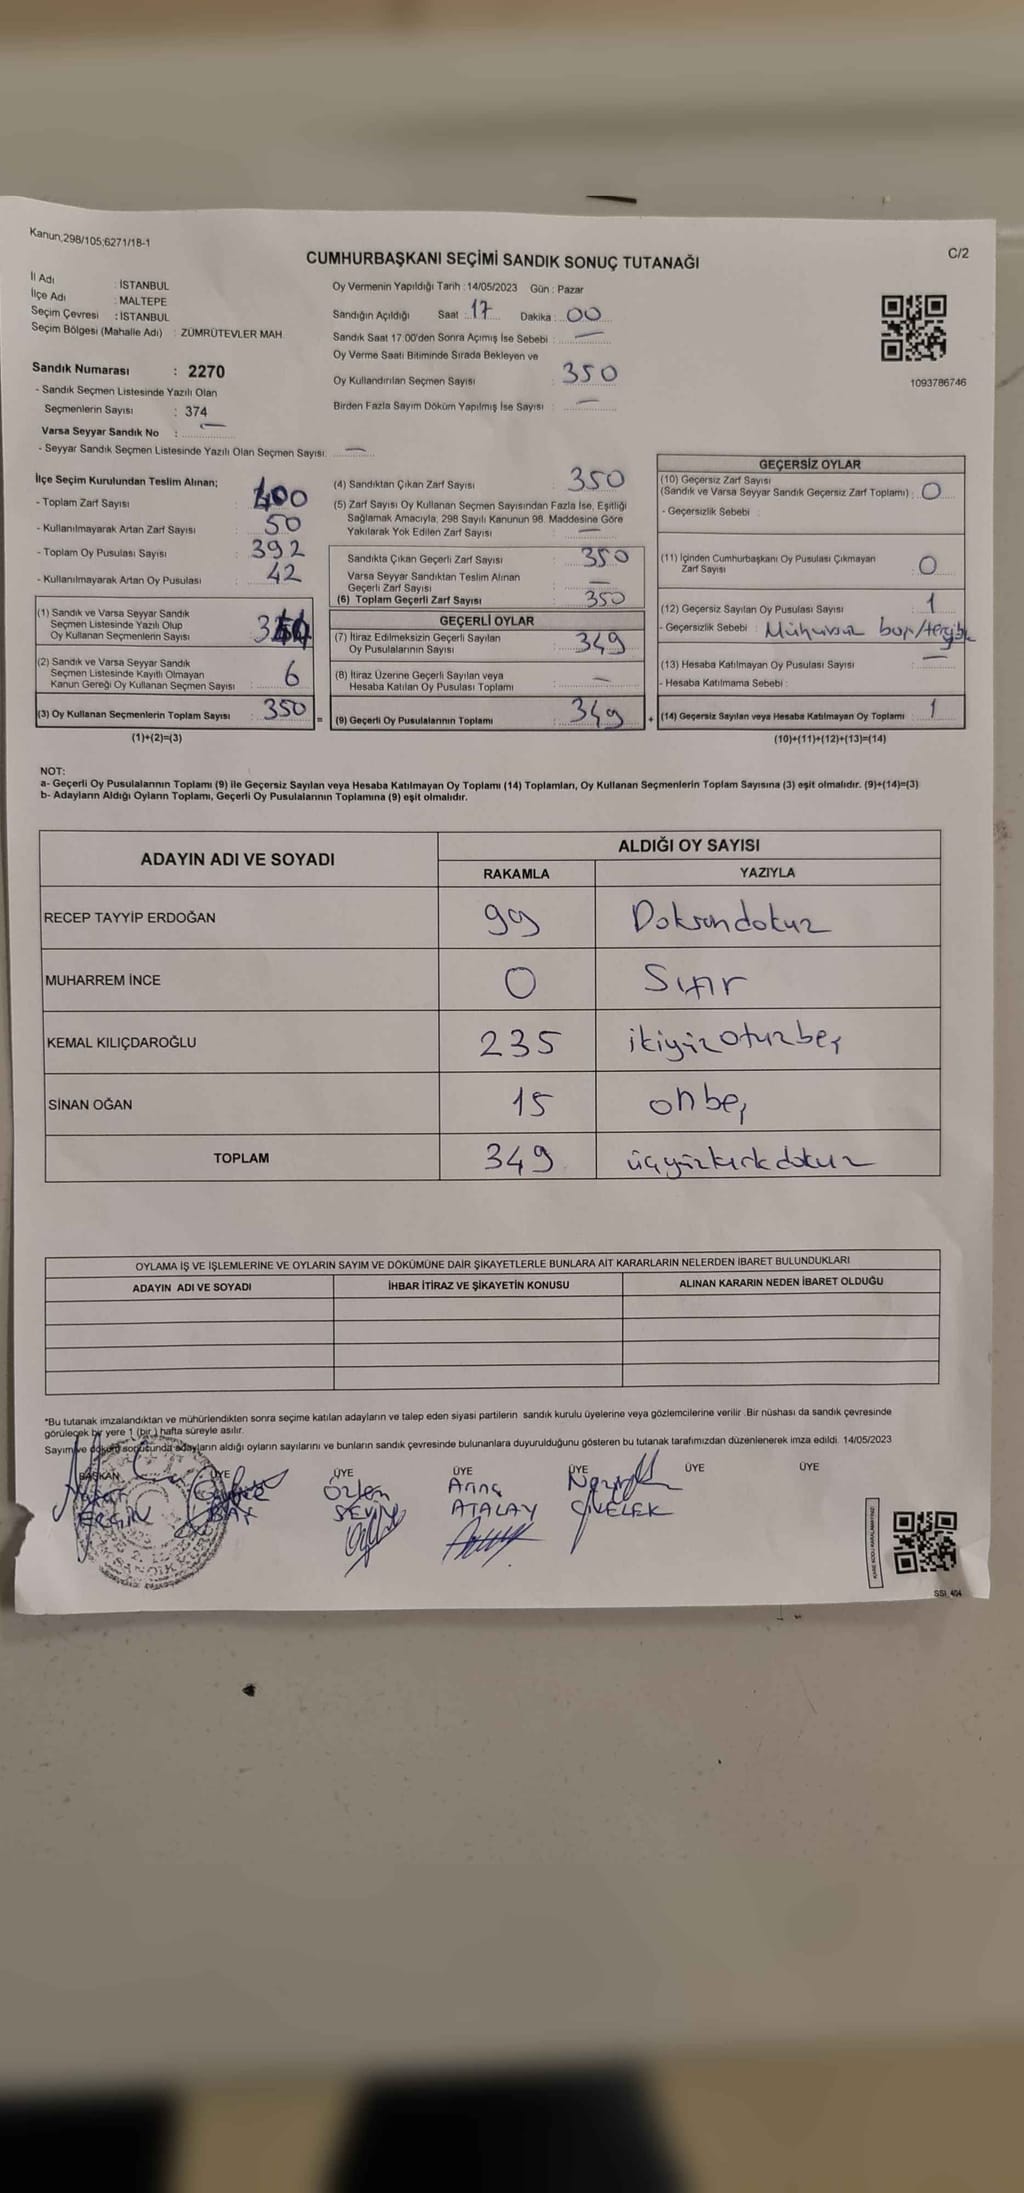 Kanun,298/105,6271/18-1
C/2
CUMHURBAŞKANI SEÇİMİ SANDIK SONUÇ TUTANAĞI
İl Adı : İSTANBUL
İlçe Adı : MALTEPE
Seçim Çevresi : İSTANBUL
Seçim Bölgesi (Mahalle Adı) : ZÜMRÜTEVLER MAH.
Sandık Numarası : 2270
- Sandık Seçmen Listesinde Yazılı Olan
Seçmenlerin Sayısı : 374
Varsa Seyyar Sandık No : —
- Seyyar Sandık Seçmen Listesinde Yazılı Olan Seçmen Sayısı: —
Oy Vermenin Yapıldığı Tarih : 14/05/2023 Gün : Pazar
Sandığın Açıldığı Saat : 17 Dakika : 00
Sandık Saat 17:00'den Sonra Açımış İse Sebebi : —
Oy Verme Saati Bitiminde Sırada Bekleyen ve
Oy Kullandırılan Seçmen Sayısı : 350
Birden Fazla Sayım Döküm Yapılmış İse Sayısı : —
1093786746
İlçe Seçim Kurulundan Teslim Alınan;
- Toplam Zarf Sayısı : 400
- Kullanılmayarak Artan Zarf Sayısı : 50
- Toplam Oy Pusulası Sayısı : 392
- Kullanılmayarak Artan Oy Pusulası : 42
(1) Sandık ve Varsa Seyyar Sandık
Seçmen Listesinde Yazılı Olup
Oy Kullanan Seçmenlerin Sayısı
(2) Sandık ve Varsa Seyyar Sandık
Seçmen Listesinde Kayıtlı Olmayan
Kanun Gereği Oy Kullanan Seçmen Sayısı : 6
(3) Oy Kullanan Seçmenlerin Toplam Sayısı : 350
(1)+(2)=(3)
(4) Sandıktan Çıkan Zarf Sayısı : 350
(5) Zarf Sayısı Oy Kullanan Seçmen Sayısından Fazla İse, Eşitliği
Sağlamak Amacıyla, 298 Sayılı Kanunun 98. Maddesine Göre
Yakılarak Yok Edilen Zarf Sayısı : —
Sandıkta Çıkan Geçerli Zarf Sayısı : 350
Varsa Seyyar Sandıktan Teslim Alınan
Geçerli Zarf Sayısı : —
(6) Toplam Geçerli Zarf Sayısı : 350
GEÇERLİ OYLAR
(7) İtiraz Edilmeksizin Geçerli Sayılan
Oy Pusulalarının Sayısı : 349
(8) İtiraz Üzerine Geçerli Sayılan veya
Hesaba Katılan Oy Pusulası Toplamı : —
= (9) Geçerli Oy Pusulalarının Toplamı : 349
GEÇERSİZ OYLAR
(10) Geçersiz Zarf Sayısı
(Sandık ve Varsa Seyyar Sandık Geçersiz Zarf Toplamı) : 0
- Geçersizlik Sebebi :
(11) İçinden Cumhurbaşkanı Oy Pusulası Çıkmayan
Zarf Sayısı : 0
(12) Geçersiz Sayılan Oy Pusulası Sayısı : 1
- Geçersizlik Sebebi : Mühürsüz
(13) Hesaba Katılmayan Oy Pusulası Sayısı : —
- Hesaba Katılmama Sebebi :
+ (14) Geçersiz Sayılan veya Hesaba Katılmayan Oy Toplamı : 1
(10)+(11)+(12)+(13)=(14)
NOT:
a- Geçerli Oy Pusulalarının Toplamı (9) ile Geçersiz Sayılan veya Hesaba Katılmayan Oy Toplamı (14) Toplamları, Oy Kullanan Seçmenlerin Toplam Sayısına (3) eşit olmalıdır. (9)+(14)=(3)
b- Adayların Aldığı Oyların Toplamı, Geçerli Oy Pusulalarının Toplamına (9) eşit olmalıdır.
ADAYIN ADI VE SOYADI
ALDIĞI OY SAYISI
RAKAMLA YAZIYLA
RECEP TAYYİP ERDOĞAN 99 Doksandokuz
MUHARREM İNCE 0 Sıfır
KEMAL KILIÇDAROĞLU 235 ikiyüzotuzbeş
SİNAN OĞAN 15 onbeş
TOPLAM 349 üçyüzkırkdokuz
OYLAMA İŞ VE İŞLEMLERİNE VE OYLARIN SAYIM VE DÖKÜMÜNE DAİR ŞİKAYETLERLE BUNLARA AİT KARARLARIN NELERDEN İBARET BULUNDUKLARI
ADAYIN ADI VE SOYADI İHBAR İTİRAZ VE ŞİKAYETİN KONUSU ALINAN KARARIN NEDEN İBARET OLDUĞU
*Bu tutanak imzalandıktan ve mühürlendikten sonra seçime katılan adayların ve talep eden siyasi partilerin sandık kurulu üyelerine veya gözlemcilerine verilir .Bir nüshası da sandık çevresinde
görülecek bir yere 1 (bir ) hafta süreyle asılır.
Sayım ve döküm sonucunda adayların aldığı oyların sayılarını ve bunların sandık çevresinde bulunanlara duyurulduğunu gösteren bu tutanak tarafımızdan düzenlenerek imza edildi. 14/05/2023
BAŞKAN ÜYE ÜYE ÜYE ÜYE ÜYE ÜYE
Özlem
ERGİN ATALAY ÇİVELEK
SSI_404